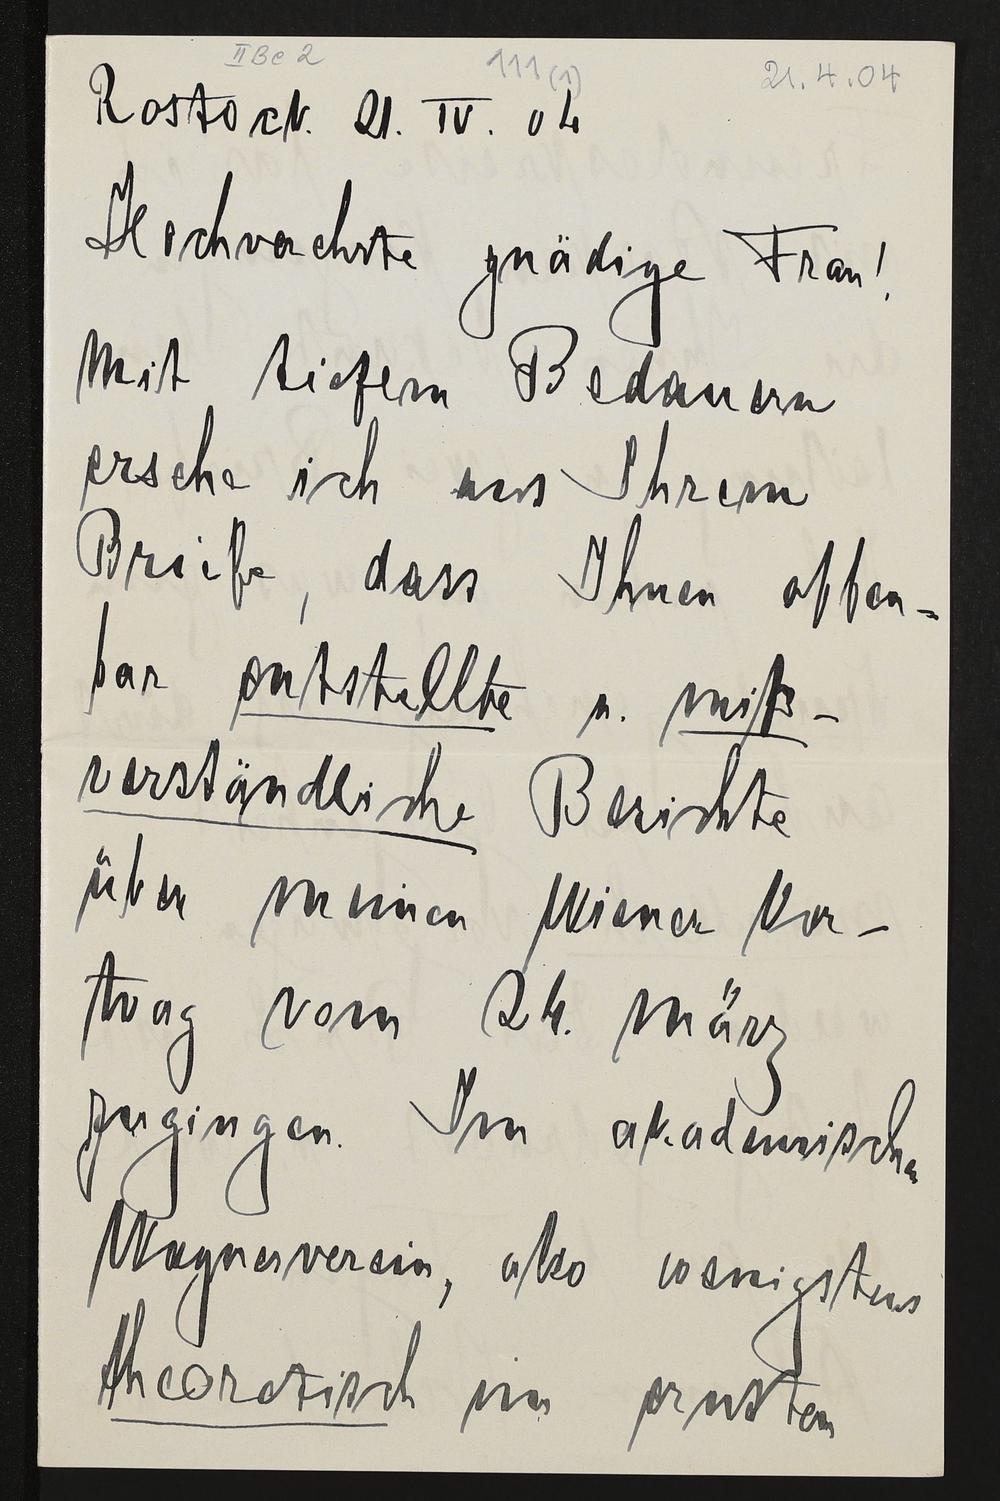 II Be 2 111 (1) 21.4.04
Rostock. 21. IV. 04
Hochverehrte gnädige Frau!
Mit tiefem Bedauern
ersehe ich aus Ihrem
Briefe, dass Ihnen offen-
bar entstellte u. miß-
verständliche Berichte
über meinen Wiener Vor-
trag vom 24. März
zugingen. Im akademischen
Wagnerverein, also wenigstens
theoretisch im ernsten